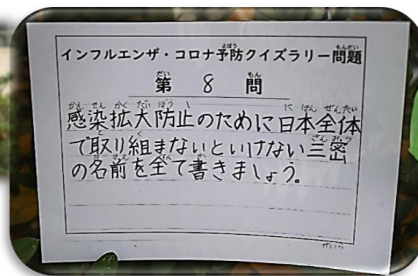 インフルエンザ・コロナ予防クイズラリー問題
第 8 問
感染拡大防止のために日本全体
で取り組まないといけない三密
の名前を全て書きましょう。